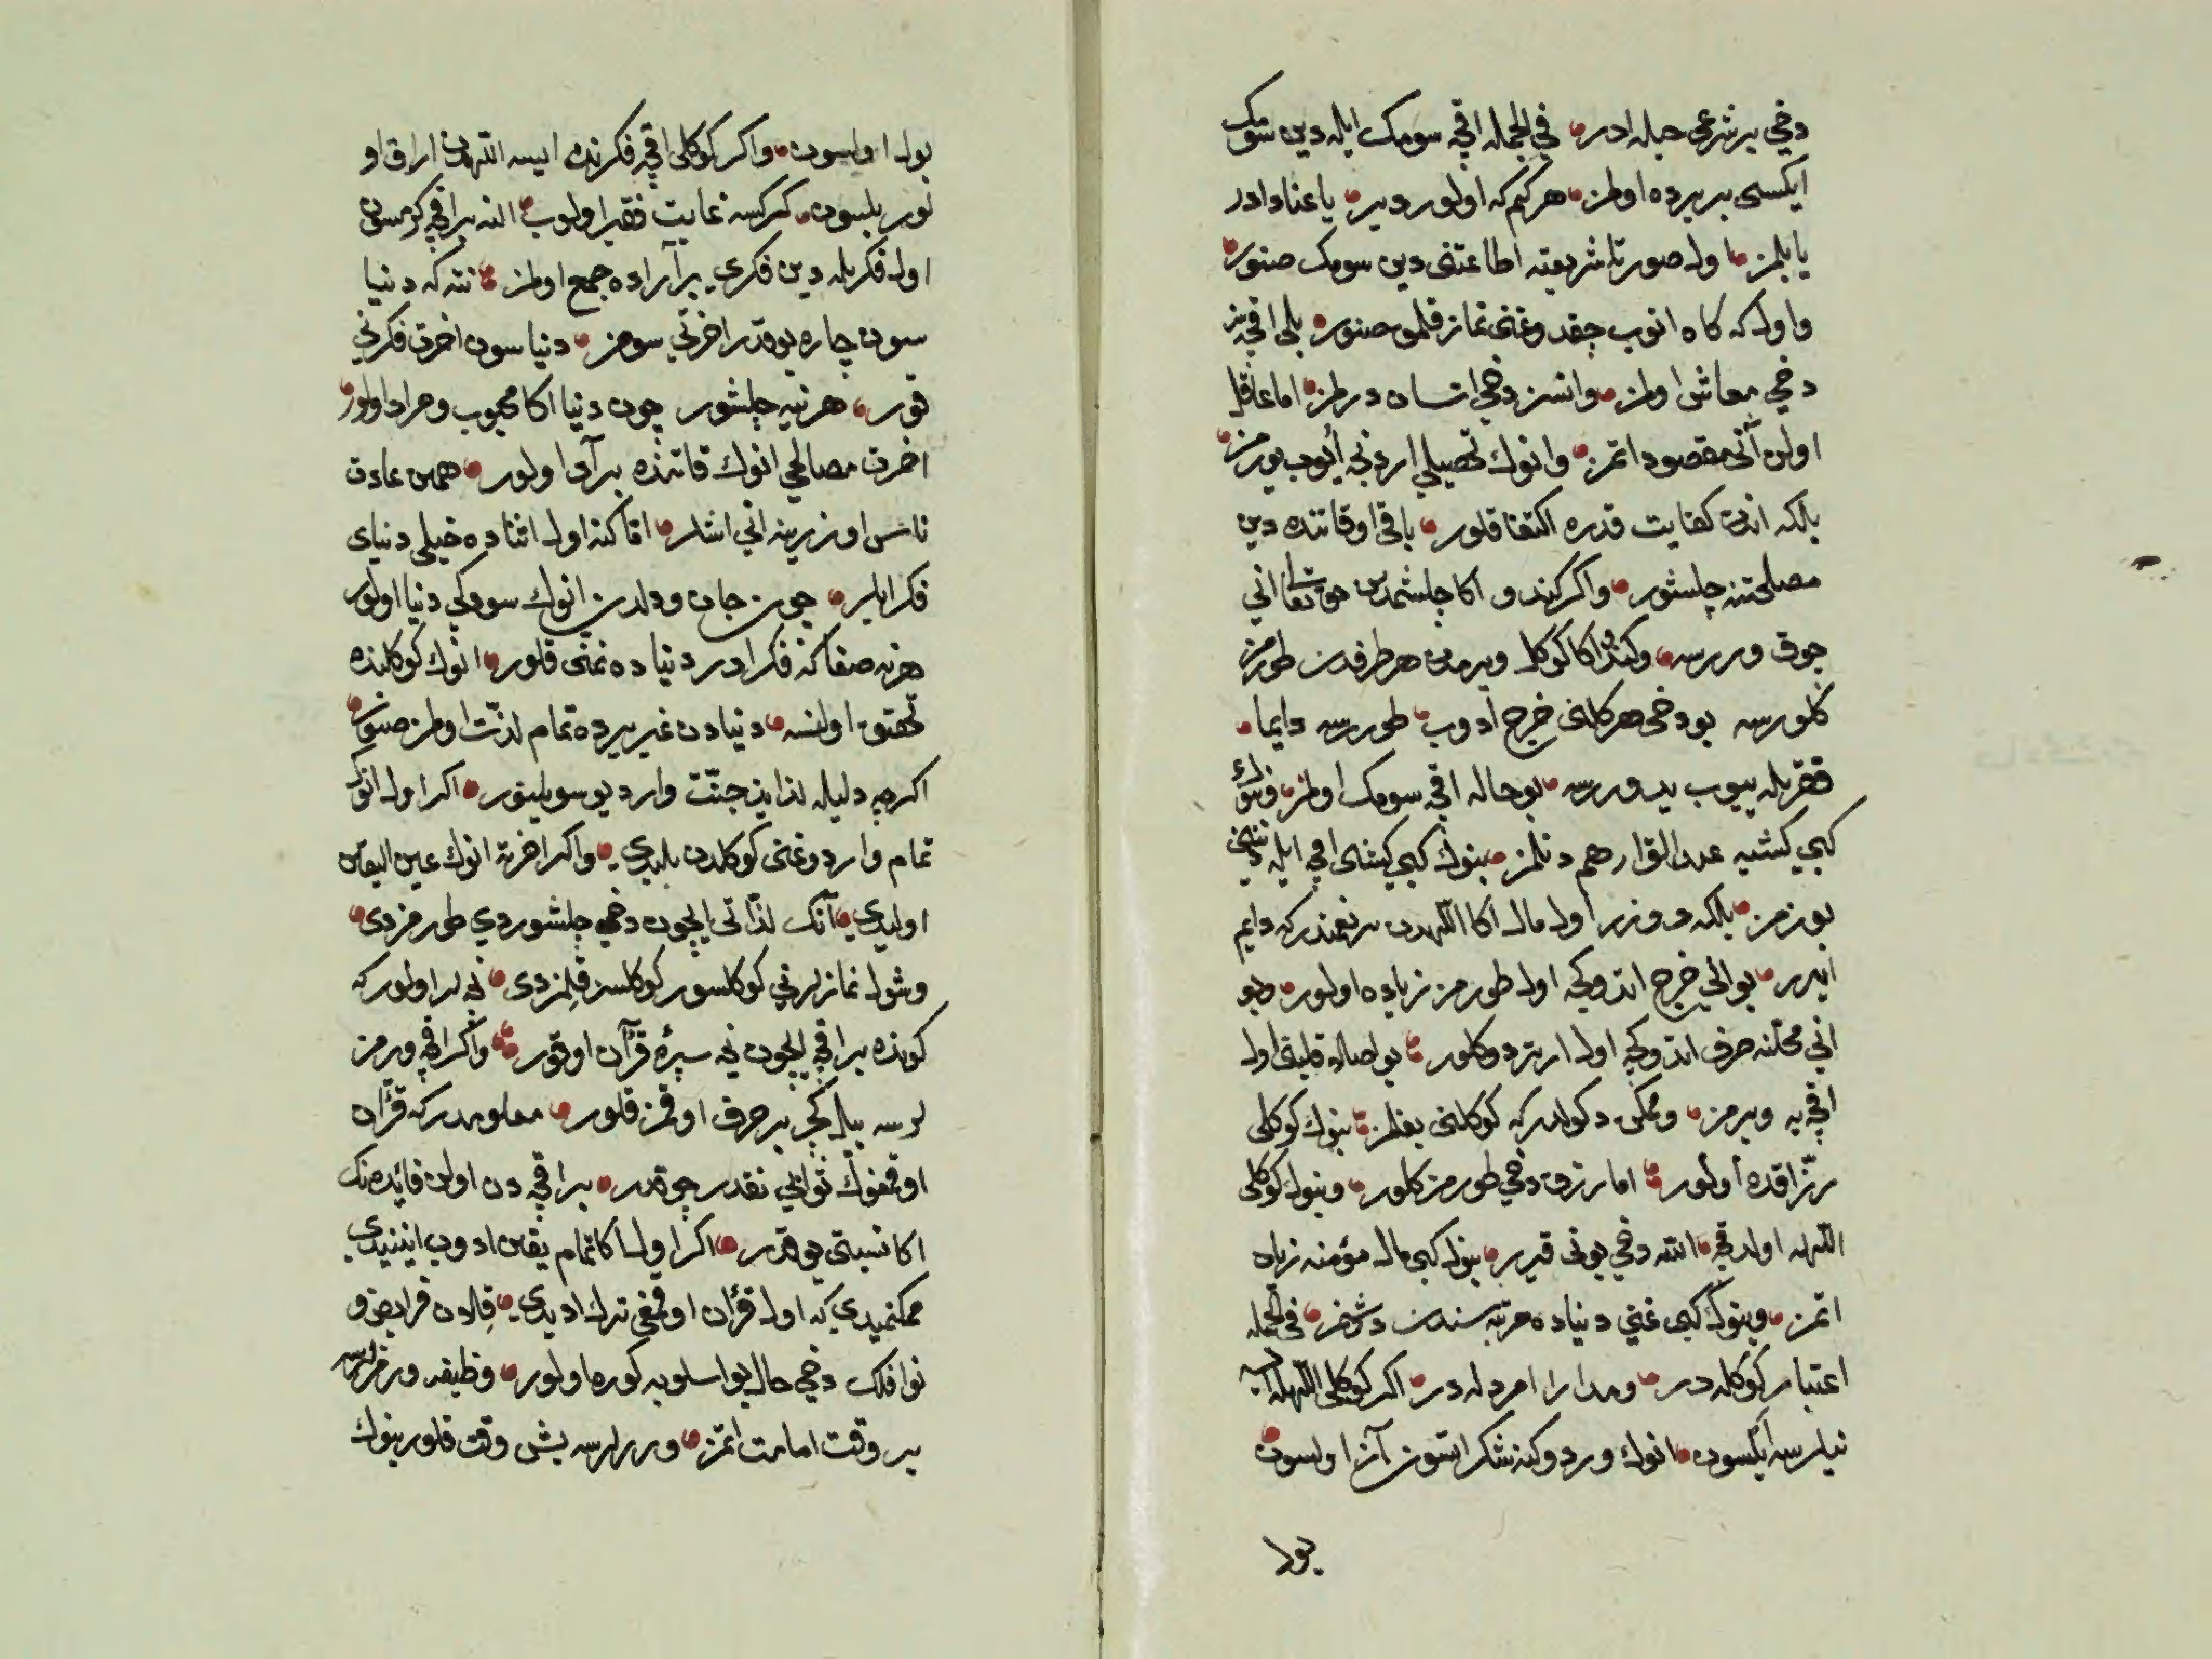 دخي بر شرعي حيله ادر في الجمله اقچه سومك ايله دين سومك
ايكسى بر يرده اولمز هر كم كه اولور دير يا عناد ادر
يا بلمز اول صورتا شريعته اطاعتنى دين سومك صنور
و اول كه كاه انوب چقدوغنى نماز قلمق صنور بلى اقچه سز
دخي معاش اولمز و انسز دخي انسان درلمز اما عاقل
اولن آنى مقصود اتمز و انوك تحصيلى اردنجه ايوب يورمز
بلكه اندن كفايت قدره اكتفا قلور باقى اوقاتنده دين
مصلحتنه چلشور و اكر كندو اكا چلشمدين حق تعالى اني
چوق وررسه و كندو اكا كوكل ويرمدين هر طرفدن طورمز
كلورسه بو دخى هر كلنى خرج ادوب طوررسه دايما
فقر بله ييوب يدوررسه بو حاله اقچه سومك اولمز و بنوك
كبي كشيه عبد القرار هم دنلمز بنوك كبي كيشى اقچه ايله دينى
بوزمز بلكه دوزر اول مال اكا اللهدن بر نعمتدر كه دايم
ايرر بو انى خرج اتدوكچه اول طورمز زياده اولور و بو
انى محلنه صرف اتدوكچه اول ارتر دوكلور بو اصلا قليقى اول
اقچه يه ويرمز و ممكن دكولدر كه كوكلنى بغلمز بنوك كوكلى
رزاقده اولور اما رزق دخي طورمز كلور و بنوك كوكلى
اللهله اولدقچه الله دخي بونى قيرر بنوك كبي مال مؤمنه زيان
اتمز و بنوك كبي غني دنياده مرتبه سندن دشمز في الجمله
اعتبار كوكلهدر و مدار امردلهدر اكر كوكلى اللهله ايسه
نيلرسه ايلسون انوك وردوكنه شكر اتسون آز اولسون
بول
بول اولسون و اكر كوكلى اقچه فكرنده ايسه اللهدن اراق او
لور بلسون كركسه غايت فقير اولوب النه بر اقچه كرمسون
اول فكر بله دين فكرى بر آراده جمع اولمز نته كه دنيا
سون چاره يوقدر اخرتى سومز دنيا سون اخرت فكرنى
قور هر نيه چلشور چون دنيا اكا محبوب و مراد اولور
اخرت مصالحي انوك قاتنده بر آد اولور همين عادت
ناس اوزرينه اني اشلر اقا كنه اول اثناده خيلي دنياى
فكر ايلر چون جان و دلدن انوك سودكي دنيا اولور
هر نه صفا كه فكر ادر دنياده تمنى قلور انوك كوكلنده
تحقق اولنسه دنيادن غير يرده تمام لذت اولمز صنور
اكرچه دليله لذايذ جنت وار ديو سويلينور اكر اول انوك
تمام واردوغنى كوكلدن بليدي و اكر اخرت انوك عين اليقين
اوليدي آنك لذاتى ايچون دخي چلشوردي طورمزدى
و شول نمازلرنى كوكلسوز كوكلسز قلمزدى نيلر اولور كه
كونده بر اقچه ايچون نيه سيره قرآن اوقور و اكر اقچه ورمز
لرسه ييلده كچر بر حرف اوقمز قلور معلومدر كه قرآن
اوقمغوك ثوابى نقدر چوقدر بر اقچه دن اولن فائدهنك
اكا نسبتى يوقدر اكر اول اكا تمام يقين ادوب اينيدي
ممكنميدي كه اول قرآن اوقمغى ترك اديدي قلان فرايض و
نوافلك دخي حال بو اسلوبه كوره اولور وظيفه ورمزلرسه
بر وقت امامت اتمز و ررلرسه بش وقت قلور بنوك